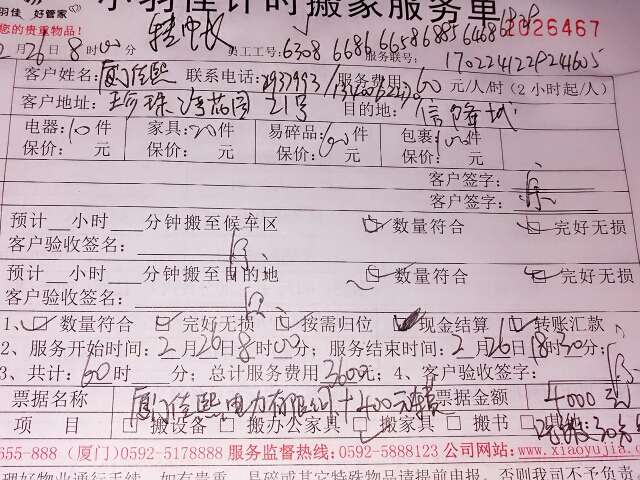 小羽佳计时搬家服务单
羽佳 好管家
您的贵重物品! 2026467
2月26日8时00分 员工工号: 6308 6686 6658 6885 6468 服务联号: 1702241229244605
客户姓名: 厦门佳熙 联系电话: 服务费用: 60 元/人/时(2小时起/人)
客户地址: 珍珠湾花园21号 目的地: 信隆城
电器: 10件 家具: 20件 易碎品: 件 包裹: 件
保价: 元 保价: 元 保价: 元 保价: 元
客户签字:
客户签字:
预计__小时__分钟搬至候车区 数量符合 完好无损
客户验收签名:
预计__小时__分钟搬至目的地 数量符合 完好无损
客户验收签名:
1、数量符合 完好无损 按需归位 现金结算 转账汇款
2、服务开始时间: 2月26日8时00分; 服务结束时间: 2月26日18时30分;
3、共计: 60时__分; 总计服务费用3600元; 4、客户验收签字:
票据名称 厦门佳熙电力有限公司+400元 票据金额 4000元
项目 搬设备 搬办公家具 搬家具 搬书 其他
655-888 (厦门)0592-5178888 服务监督热线:0592-5888123 公司网站:www.xiaoyujia.com
理好物业通行手续,如有贵重、易碎或其它特殊物品请提前申报,否则我司不予负责